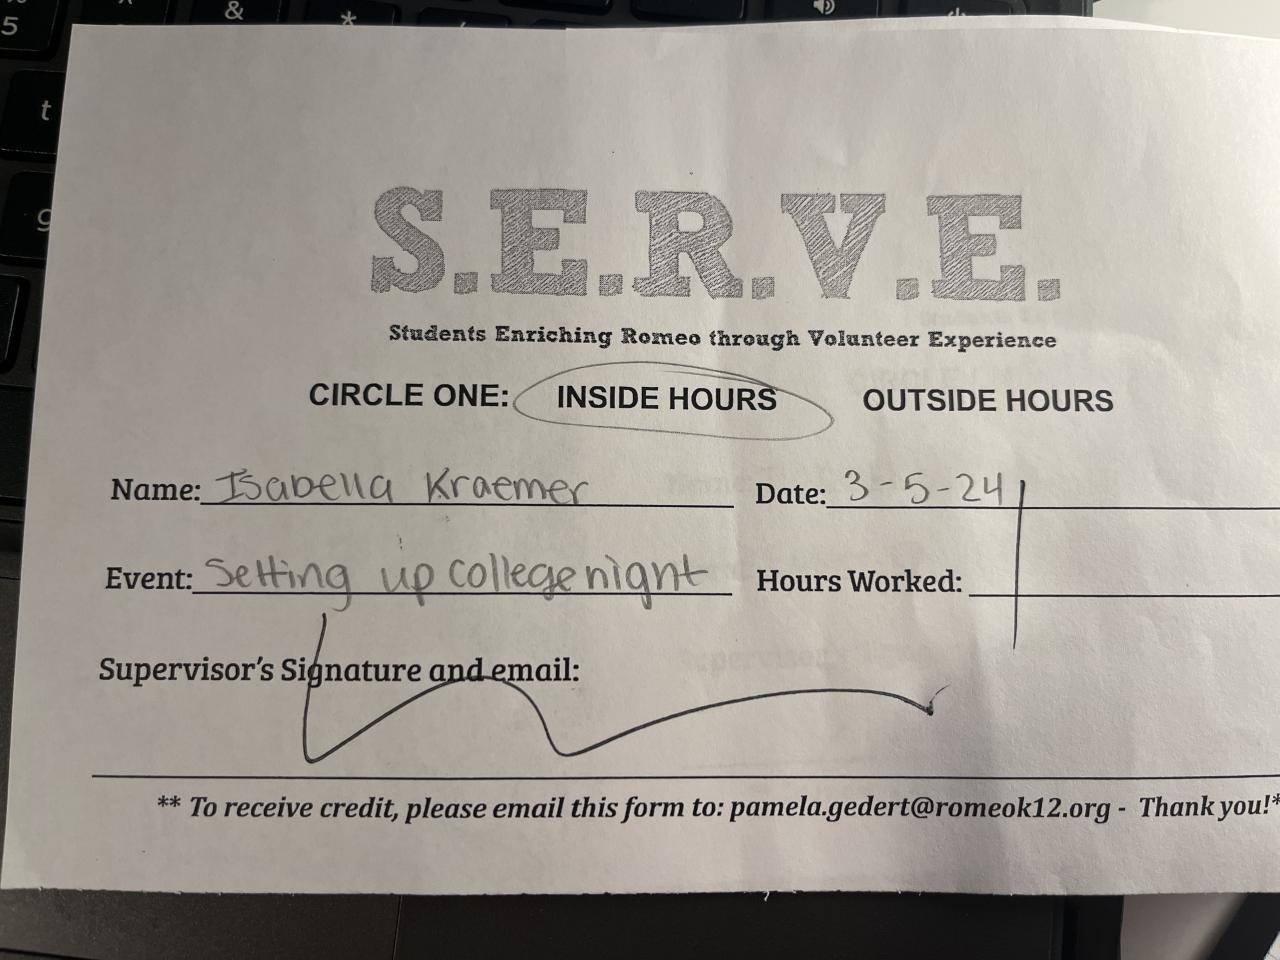 5
&
*
t
g
S.E.R.V.E.
Students Enriching Romeo through Volunteer Experience
CIRCLE ONE: INSIDE HOURS OUTSIDE HOURS
Name: Isabella Kraemer Date: 3-5-24
Event: Setting up college night Hours Worked: 1
Supervisor's Signature and email:
** To receive credit, please email this form to: pamela.gedert@romeok12.org - Thank you!*